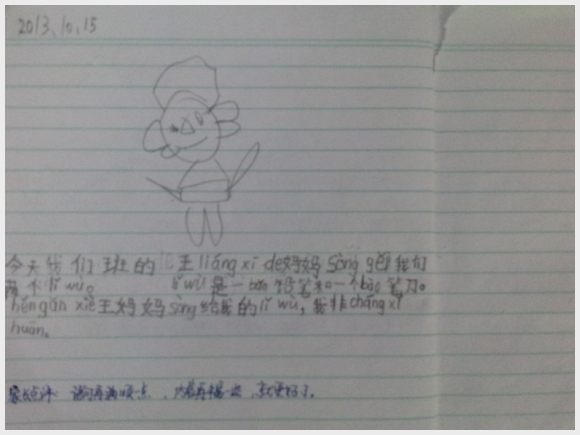 2013.10.15
今天我们班的王liáng xī de妈妈sòng gěi我们
两个lǐ wù。lǐ wù是一bāo铅笔和一个bāo笔刀。
hěn gǎn xiè王妈妈sòng给我的lǐ wù,我非cháng xǐ
huān。
家长点评:语句再满顺一点,内容再一些,就更好了。